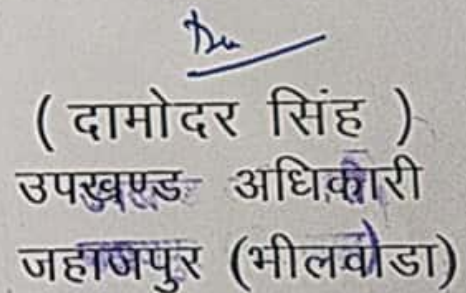 ( दामोदर सिंह )
उपखण्ड अधिकारी
जहाजपुर (भीलवाडा)